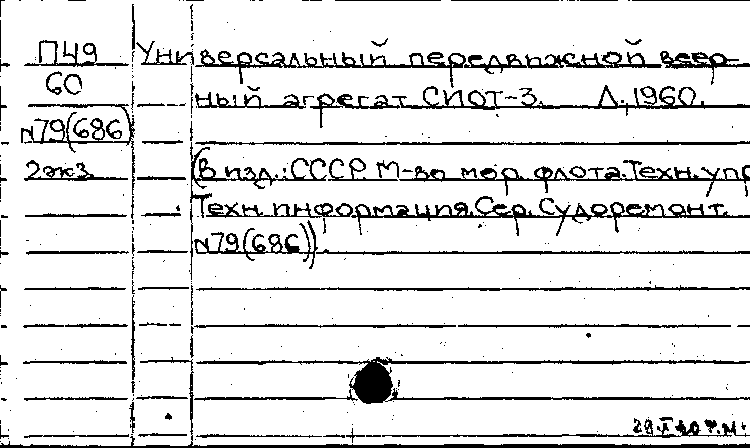 П49
60
N79(686)
2экз.
Универсальный передвижной веер-
ный агрегат СИОТ-3. Л., 1960.
(В изд.: СССР. М-во мор. флота. Техн. упр
Техн. информация. Сер. Судоремонт.
N79(686)).